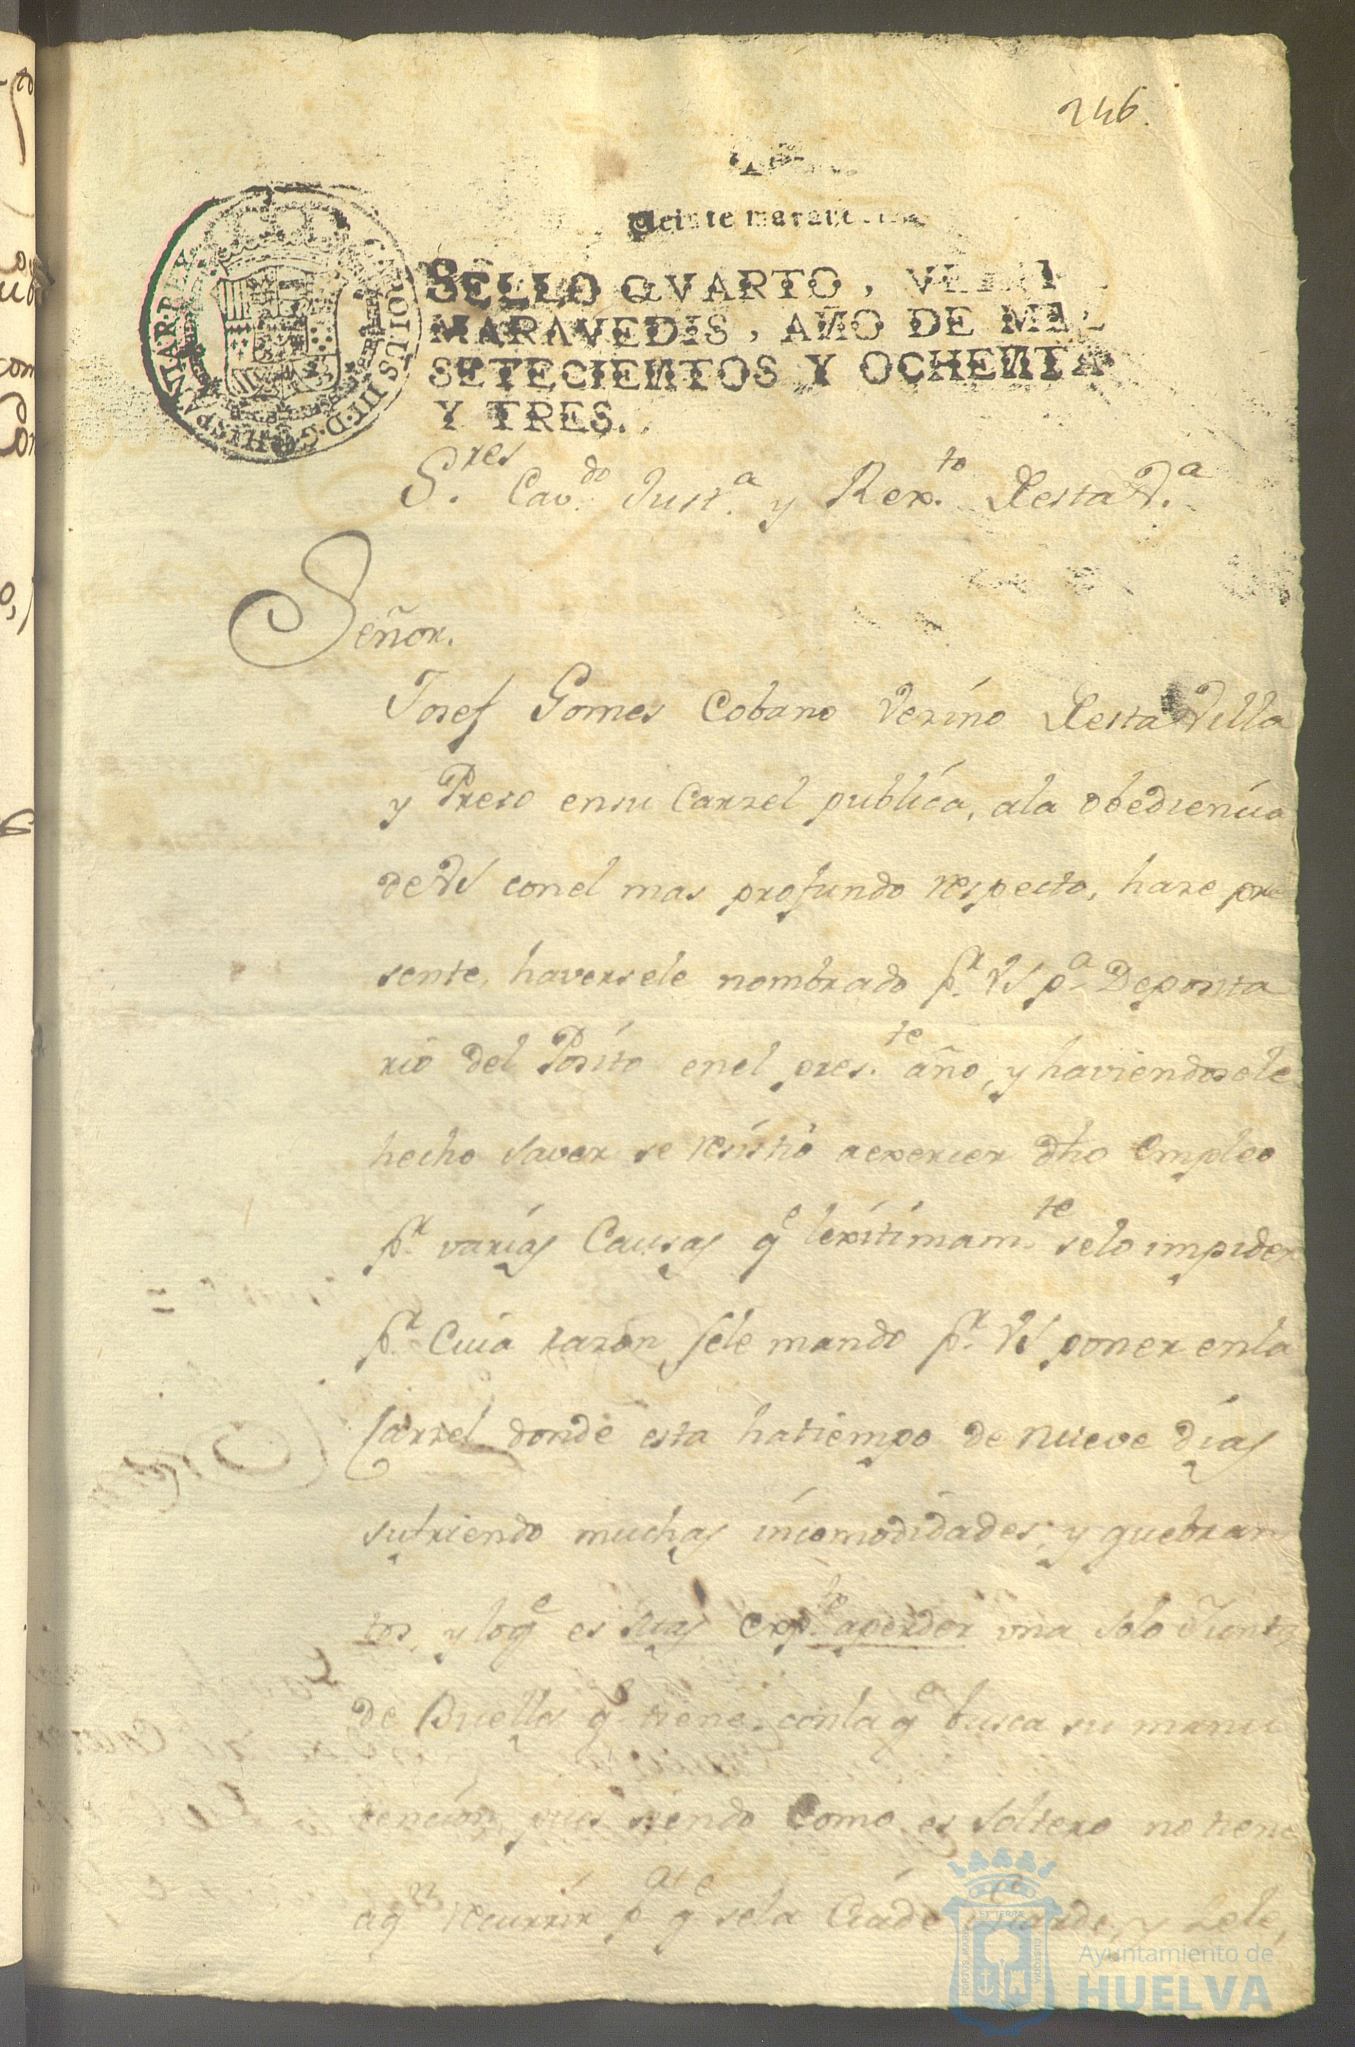 246.
Veinte maravedis
SELLO QVARTO, VEINTE
MARAVEDIS, AÑO DE MIL
SETECIENTOS Y OCHENTA
Y TRES.
CAROLUS III D.G. HISPANIAR. REX
S.res Cav.do Just.a y Rex.to Desta V.a
Señor.
Josef Gomes Cobano Vezino Desta Villa
y Preso ensu Carzel publica, ala obediencia
de VS conel mas profundo respecto, haze pre
sente, haversele nombrado p.r VS p.a Deposita
rio del Posito enel pres.te año, y haviendosele
hecho saver se resistió aexercer dho empleo
p.r varias Causas q.e lexitimam.te selo impiden
p.r Cuia razon sele mando p.r VS poner enla
Carzel donde esta hatiempo de nueve dias
sufriendo muchas incomodidades, y quebran
tos, y loq.e es mas exp.to aperder una sola Junta
de Buelles q.e tiene, conla q.e busca su manu
tencion, pues siendo Como es soltero no tiene
aq.n recurrir p q.e sela Cuide Guarde, y
Ayuntamiento de
HUELVA